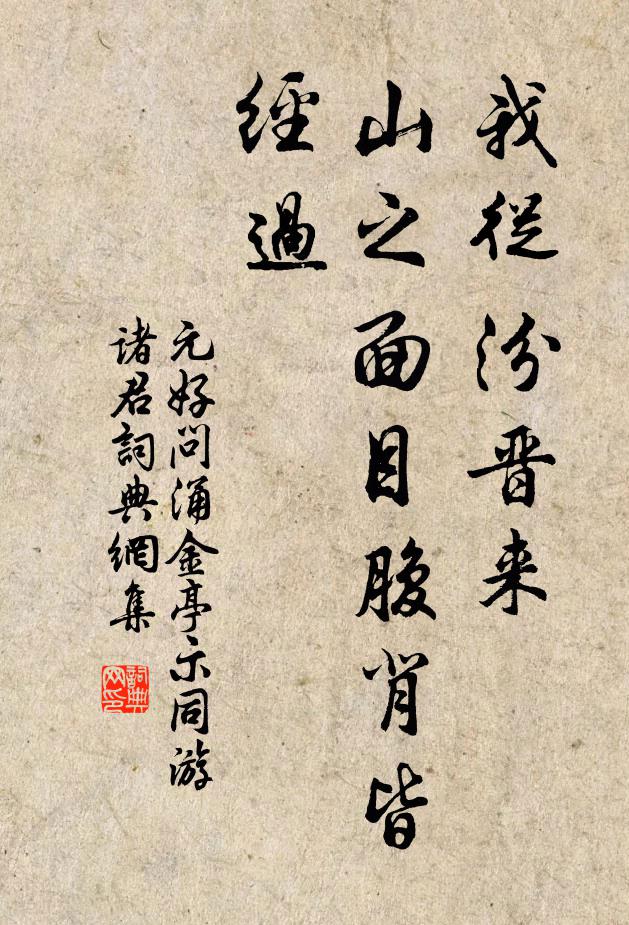 我從汾晋来
山之面目腹背皆
經過
元好问涌金亭示同游
诸君詞典網集
詞典网印